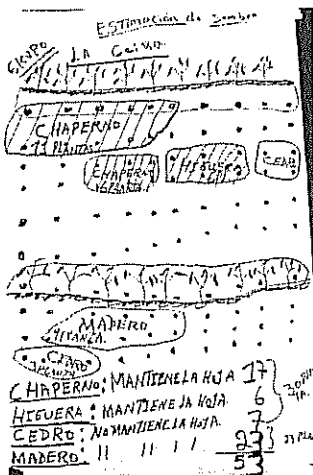 ESTIMACIÓN de Sombra
GRUPO LA Ceiba
CHAPERNO
11 PLANTAS
CHAPERNO
6 PLANTAS
HIGUERA
CEDRO
MADERO
CEDRO
CHAPERNO: MANTIENE LA HOJA 17
HIGUERA: MANTIENE LA HOJA. 6
CEDRO: NO MANTIENE LA HOJA. 7
MADERO: " " " 23
53